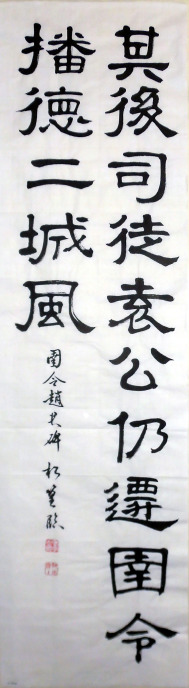 其後司徒袁公仍遷圉令
播德二城風
圉令趙君碑 臨